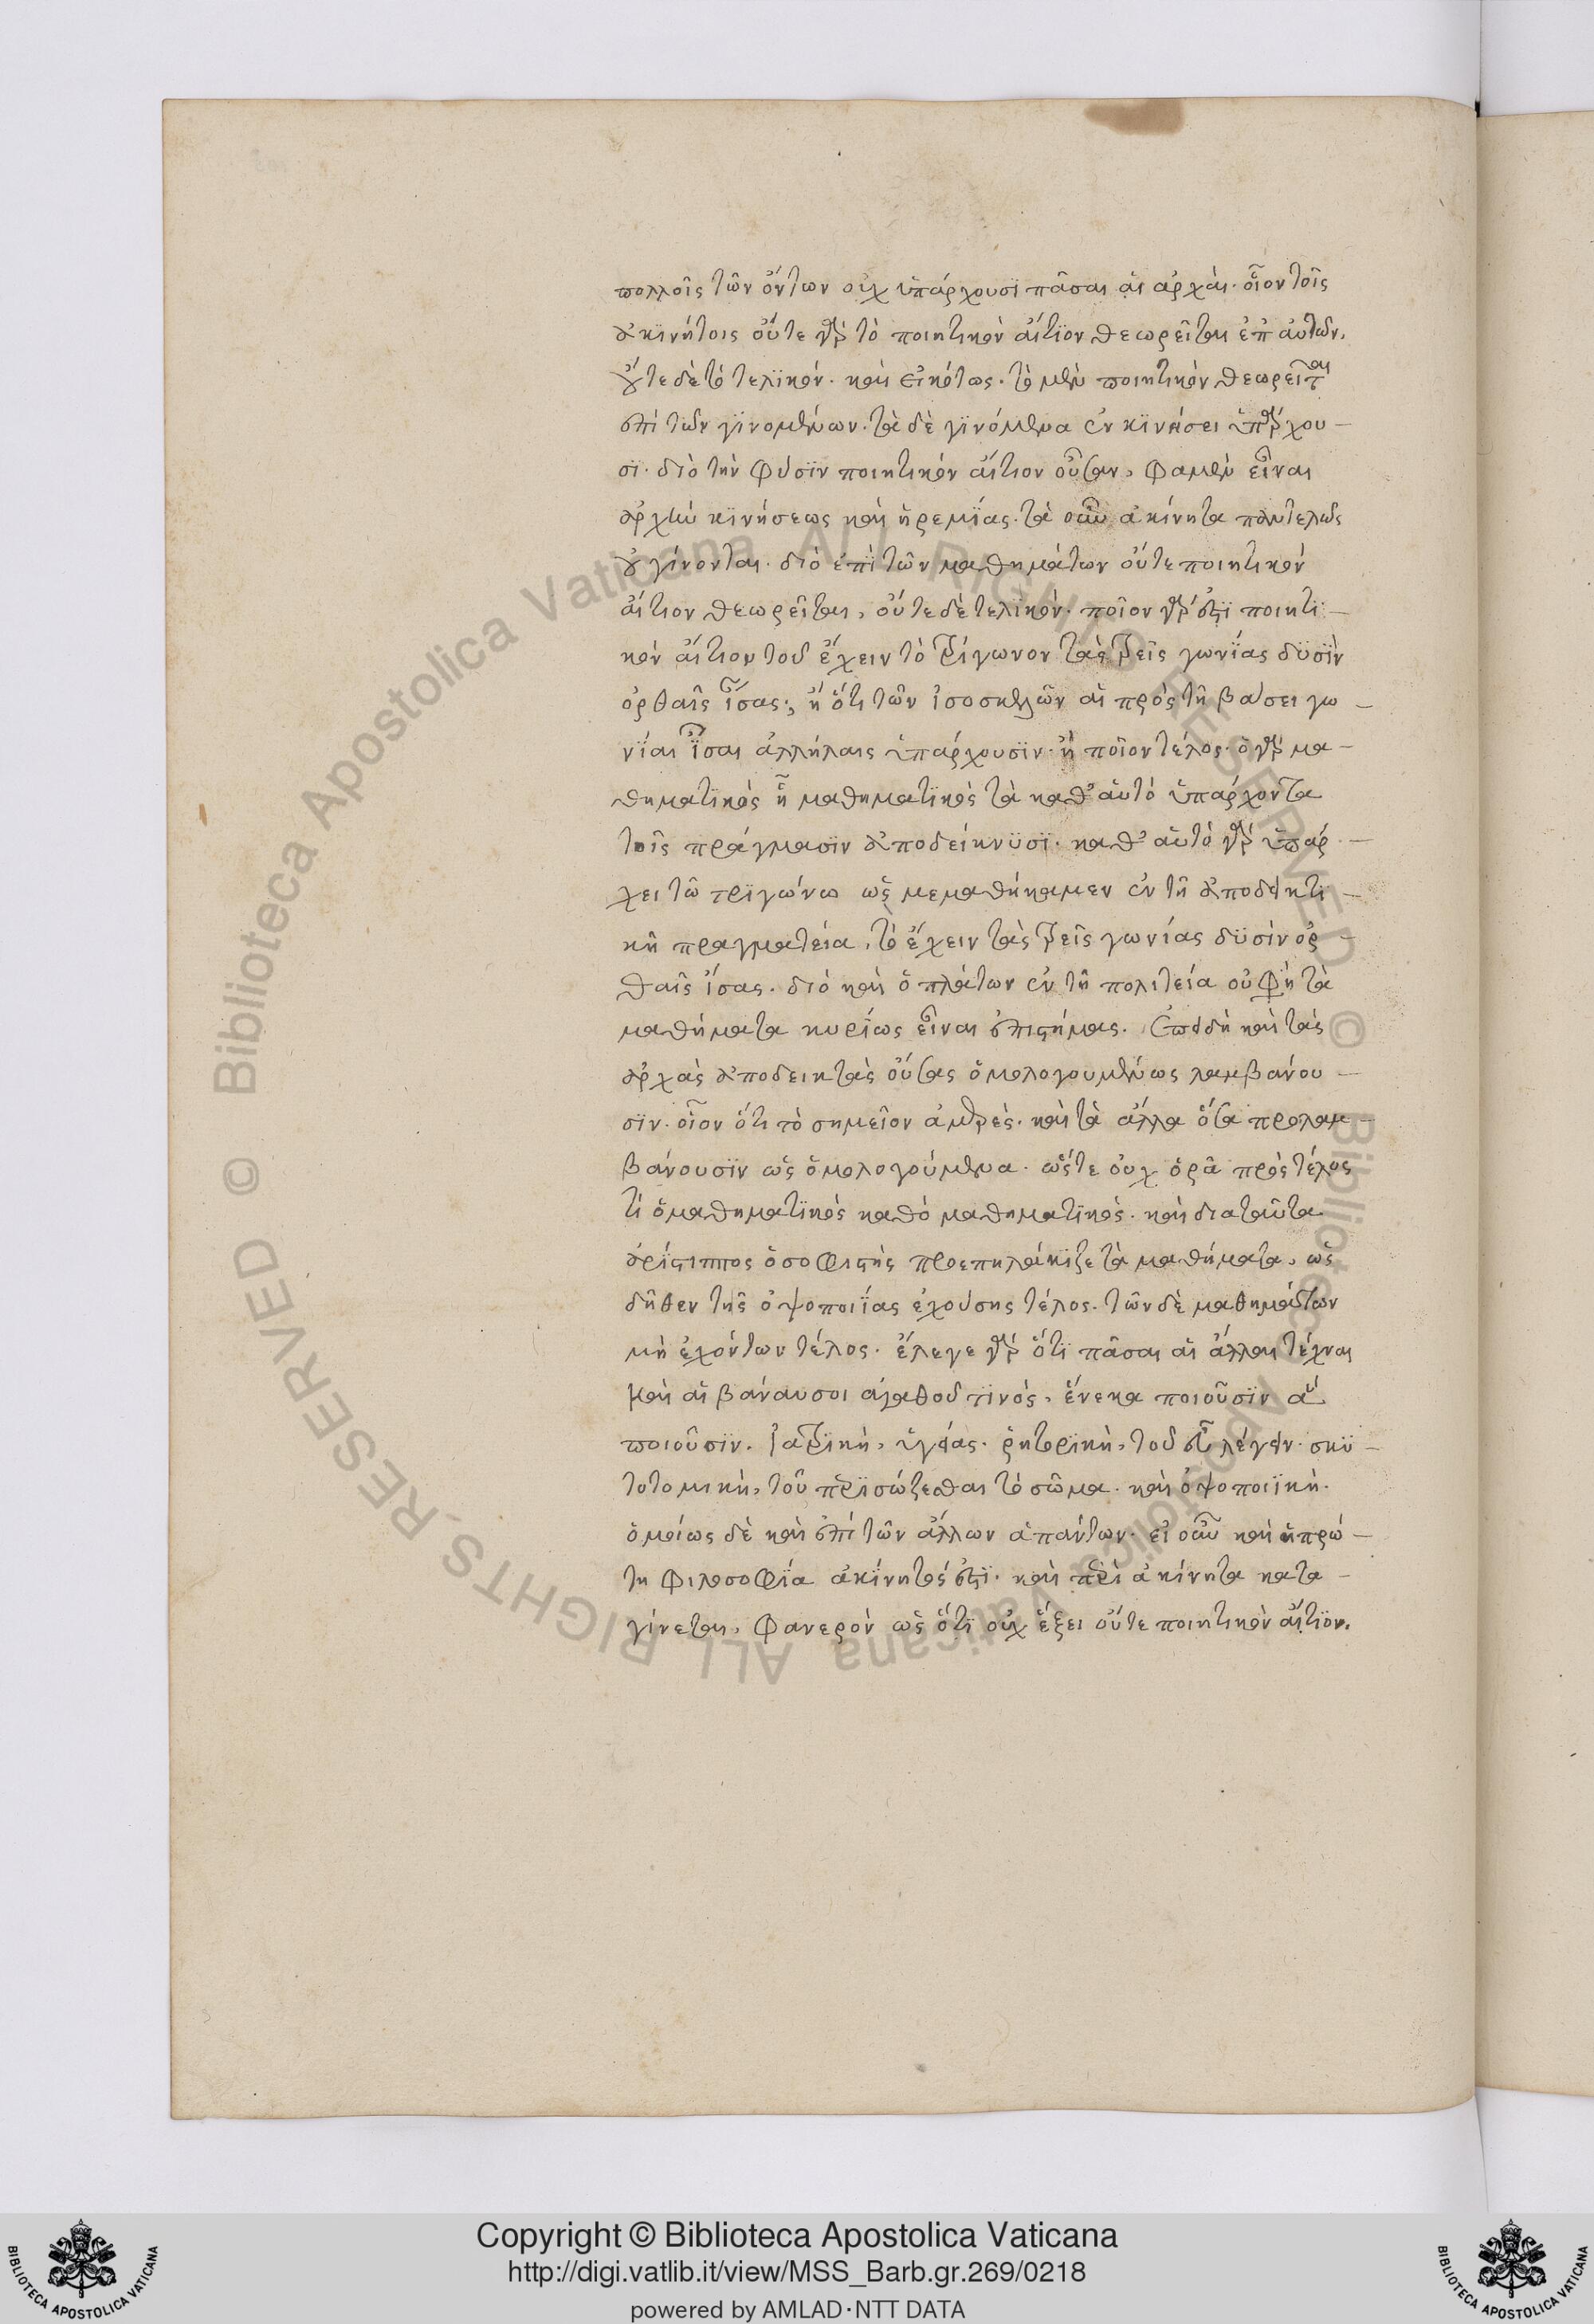 πολλοῖς τῶν ὄντων οὐχ ὑπάρχουσϊ πᾶσαι αἱ αρχάι· οἷον τοῖς
ἀκϊνήτοις οὔτε γὰρ τὸ ποιητικὸν αἴτϊον θεωρεῖται ἐπ αὐτῶν,
οὔτε δὲ τὸ τελϊκόν· καὶ εἰκότως· τὸ μὲν ποιητικὸν θεωρεῖται
ἐπὶ τῶν γϊνομένων· τὰ δὲ γϊνόμενα ἐν κϊνήσει ὑπάρχου-
σι· διὸ τὴν φύσϊν ποιητικὸν αἴτιον οὖσαν, φαμὲν εἶναι
ἀρχὴν κϊνήσεως καὶ ἠρεμϊας· τὰ οὖν ἀκίνητα παντελῶς
οὐ γίνονται· διὸ ἐπὶ τῶν μαθημάτων οὔτε ποιητικὸν
αἴτιον θεωρεῖται, οὔτε δὲ τελϊκόν· ποῖον γάρ ἐστϊ ποιητϊ-
κὸν αἴτιον τοῦ ἔχειν τὸ τρίγωνον τὰς τρεῖς γωνΐας δϋσῒν
ὀρθαῖς ἴσας; ἢ ὅτι τῶν ἰσοσκελῶν αἱ πρὸς τῇ βάσει γω-
νίαι ἴσαι ἀλλήλαις ὑπάρχουσϊν· ἢ ποῖον τέλος· ὁ γὰρ μα-
θηματϊκὸς ἧ μαθηματϊκὸς τὰ καθ' αὑτὸ ὑπάρχοντα
τοῖς πράγμασϊν ἀποδείκνϋσϊ· καθ' αὑτὸ γὰρ ὑπάρ-
χει τῶ τρϊγώνω ὡς μεμαθήκαμεν ἐν τῆ ἀποδεικτϊ-
κῆ πραγματεία, τὸ ἔχειν τὰς τρεῖς γωνίας δϋσὶν ὀρ-
θαῖς ἴσας· διὸ καὶ ὁ πλάτων ἐν τῆ πολιτεία οὔ φησι τὰ
μαθήματα κυρίως εἶναι ἐπιστήμας. ἐπειδὴ καὶ τὰς
ἀρχὰς ἀποδεικτὰς οὔσας ὁμολογουμένως λαμβάνου-
σϊν· οἷον ὅτι τὸ σημεῖον ἀμερὲς· καὶ τὰ ἄλλα ὅσα προλαμ-
βάνουσϊν ὡς ὁμολογούμενα· ὥστε οὐχ ὁρᾶ πρὸς τέλος
τὶ ὁ μαθηματϊκὸς καθὸ μαθηματϊκὸς· καὶ διαταῦτα
ἀρίστιππος ὁ σοφιστὴς προεπηλάκιζε τὰ μαθήματα, ὡς
δῆθεν τῆς ὀψοποιΐας ἐχούσης τέλος· τῶν δὲ μαθημάτων
μὴ ἐχόντων τέλος· ἔλεγε γὰρ ὅτϊ πᾶσαι αἱ ἄλλαι τέχναι
καὶ αἱ βάναυσοι ἀγαθοῦ τϊνὸς, ἕνεκα ποιοῦσϊν ἃ
ποιοῦσϊν. ἰατρϊκὴ, ὑγείας· ῥητορϊκὴ, τοῦ εὖ λέγειν· σκϋ-
τοτομικὴ, τοῦ περϊσώζεσθαι τὸ σῶμα· καὶ ὀψοποιϊκὴ·
ὁμοίως δὲ καὶ ἐπὶ τῶν ἄλλων ἁπάντων· εἰ οὖν καὶ ἡ πρώ-
τη φιλοσοφΐα ἀκΐνητός ἐστϊ· καὶ περὶ ἀκίνητα κατα-
γίνεται, φανερὸν ὡς ὅτϊ οὐχ ἕξει οὔτε ποιητικὸν αἴτϊον,
Copyright © Biblioteca Apostolica Vaticana
http://digi.vatlib.it/view/MSS_Barb.gr.269/0218
powered by AMLAD·NTT DATA